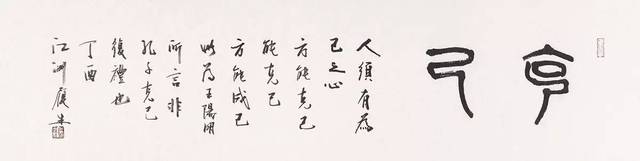 克己
人須有為
己之心
方能克己
能克己
方能成己
此為王陽明
所言非
孔子克己
復禮也
丁酉
江洲